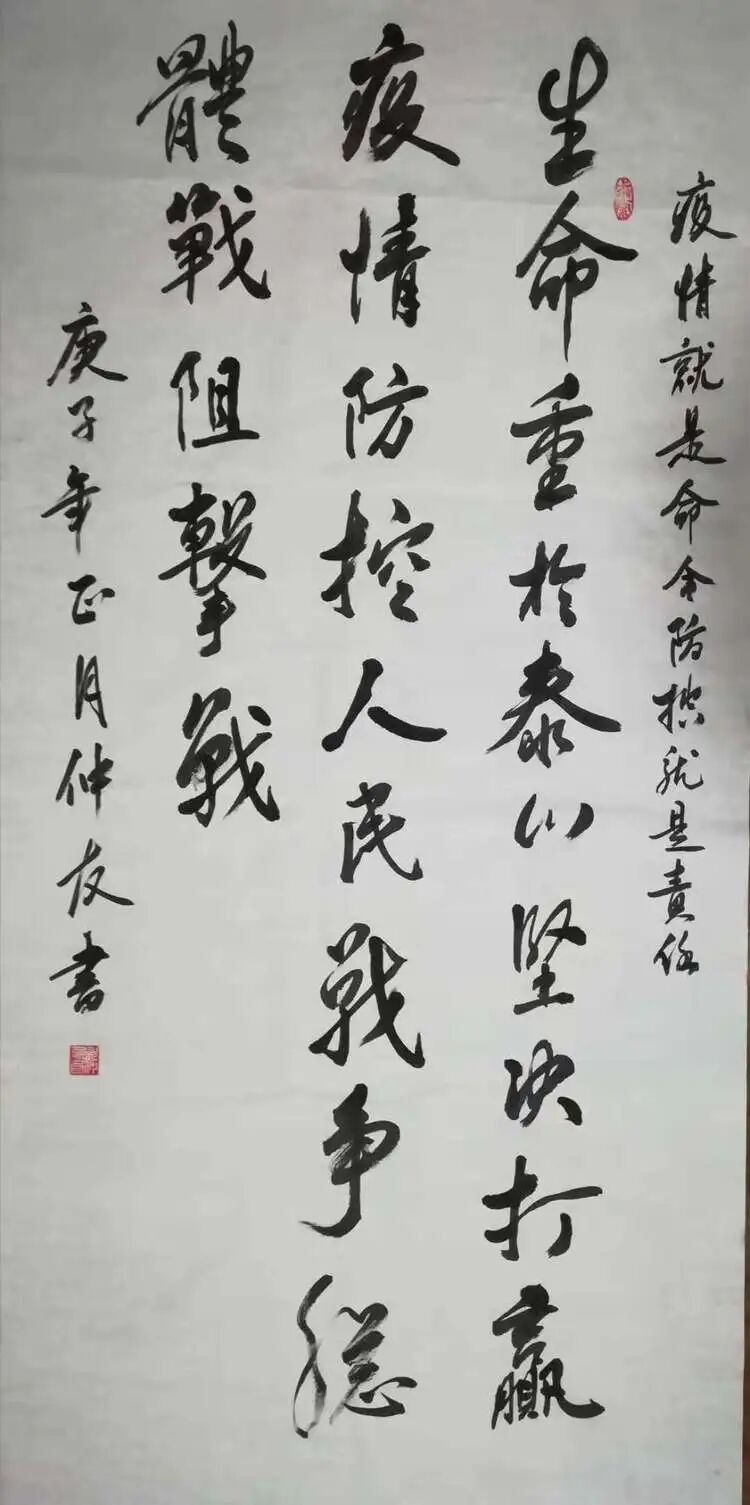 疫情就是命令防控就是责任
生命重於泰山坚决打赢
疫情防控人民戰争總
體戰阻擊戰
庚子年正月仲友書